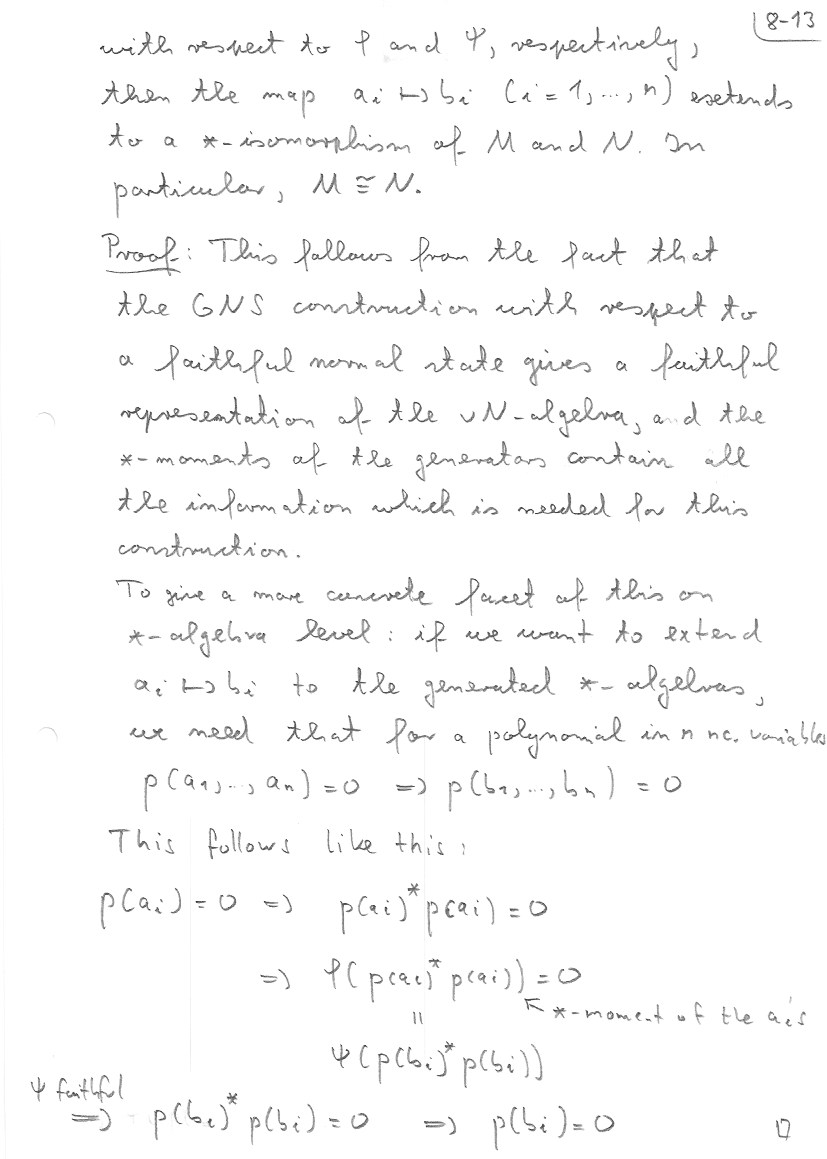 8-13
with respect to φ and ψ, respectively,
then the map aᵢ ↦ bᵢ (i = 1, ..., n) extends
to a *-isomorphism of M and N. In
particular, M ≅ N.
Proof: This follows from the fact that
the GNS construction with respect to
a faithful normal state gives a faithful
representation of the vN-algebra, and the
*-moments of the generators contain all
the information which is needed for this
construction.
To give a more concrete facet of this on
*-algebra level: if we want to extend
aᵢ ↦ bᵢ to the generated *-algebras,
we need that for a polynomial in n nc. variables
p(a₁, ..., aₙ) = 0 ⇒ p(b₁, ..., bₙ) = 0
This follows like this:
p(aᵢ) = 0 ⇒ p(aᵢ)* p(aᵢ) = 0
⇒ φ(p(aᵢ)* p(aᵢ)) = 0
↖ *-moment of the aᵢ's
||
ψ(p(bᵢ)* p(bᵢ))
ψ faithful
⇒ p(bᵢ)* p(bᵢ) = 0 ⇒ p(bᵢ) = 0 □